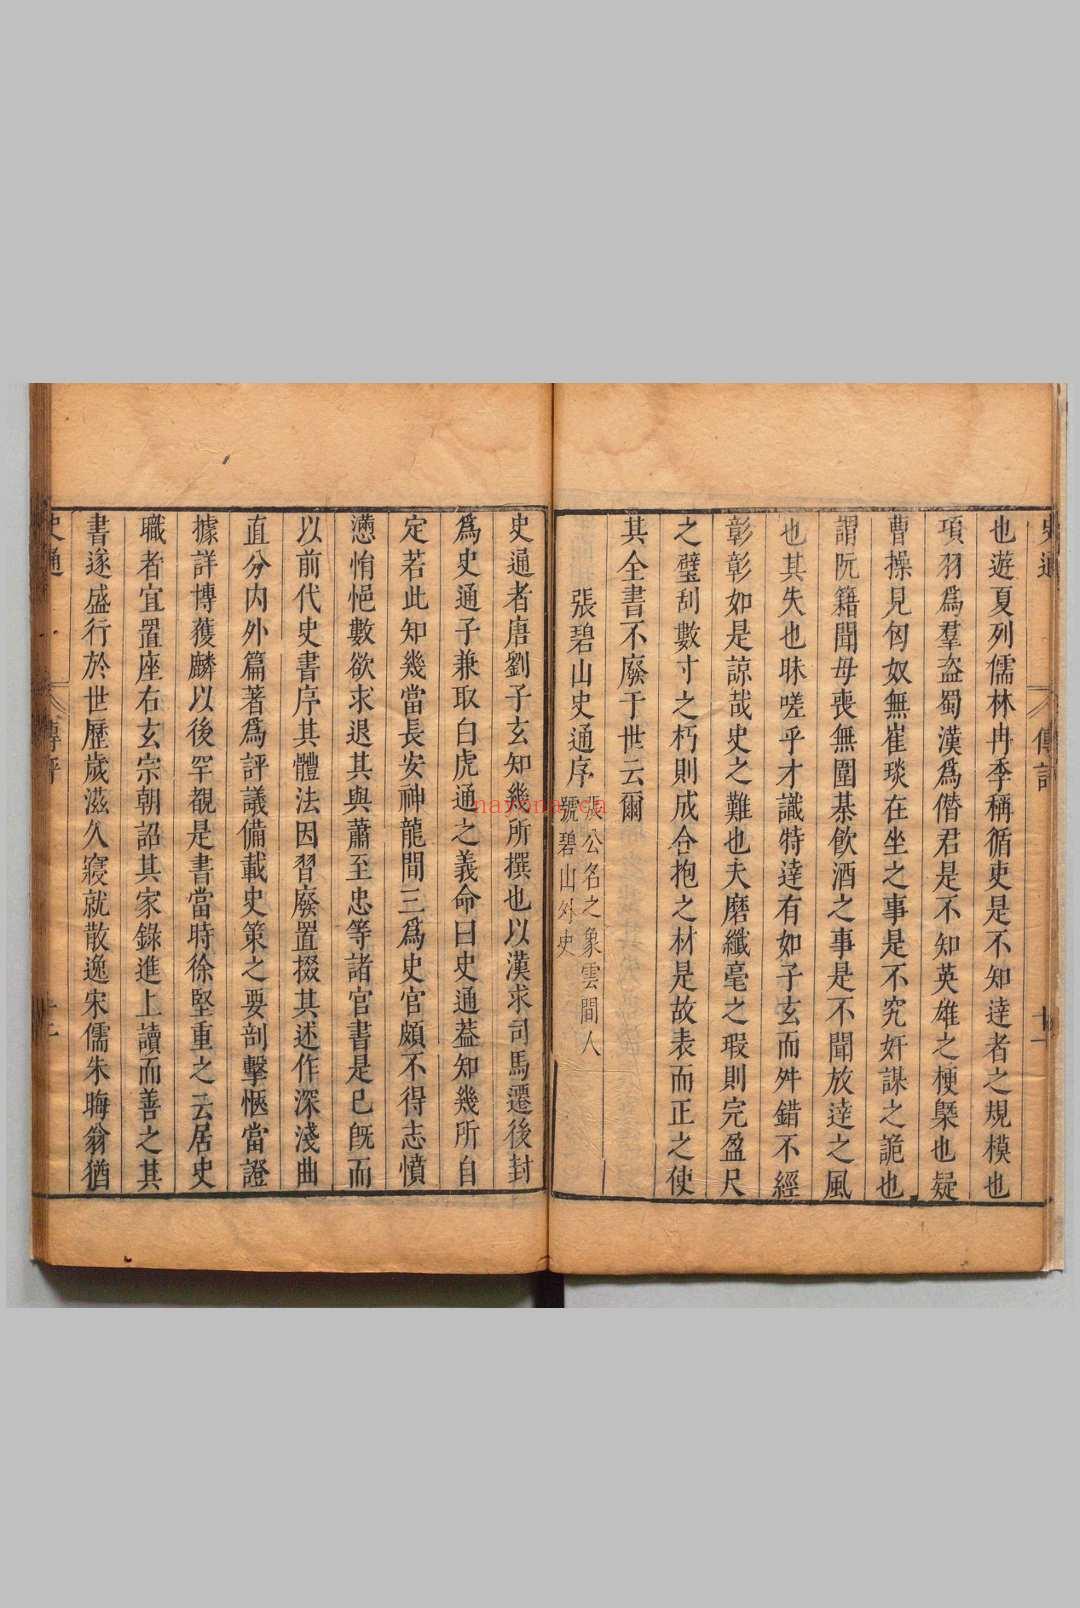 史通
傳評
十一
也遊夏列儒林冉季稱循吏是不知達者之規模也
項羽爲羣盜蜀漢爲僭君是不知英雄之梗槩也疑
曹操見匈奴無崔琰在坐之事是不究奸謀之詭也
謂阮籍聞母喪無圍棊飮酒之事是不聞放達之風
也其失也昧嗟乎才識特達有如子玄而舛錯不經
彰彰如是諒哉史之難也夫磨纖毫之瑕則完盈尺
之璧刮數寸之朽則成合抱之材是故表而正之使
其全書不廢于世云爾
張碧山史通序
張公名之象雲間人
號碧山外史
史通者唐劉子玄知幾所撰也以漢求司馬遷後封
爲史通子兼取白虎通之義命曰史通葢知幾所自
定若此知幾當長安神龍間三爲史官頗不得志憤
懣悁悒數欲求退其與蕭至忠等諸官書是已旣而
以前代史書序其體法因習廢置掇其述作深淺曲
直分内外篇著爲評議備載史策之要剖擊愜當證
據詳博獲麟以後罕覯是書當時徐堅重之云居史
職者宜置座右玄宗朝詔其家錄進上讀而善之其
書遂盛行於世歷歲滋久寢就散逸宋儒朱晦翁猶
史通
傳評
nayona.ca